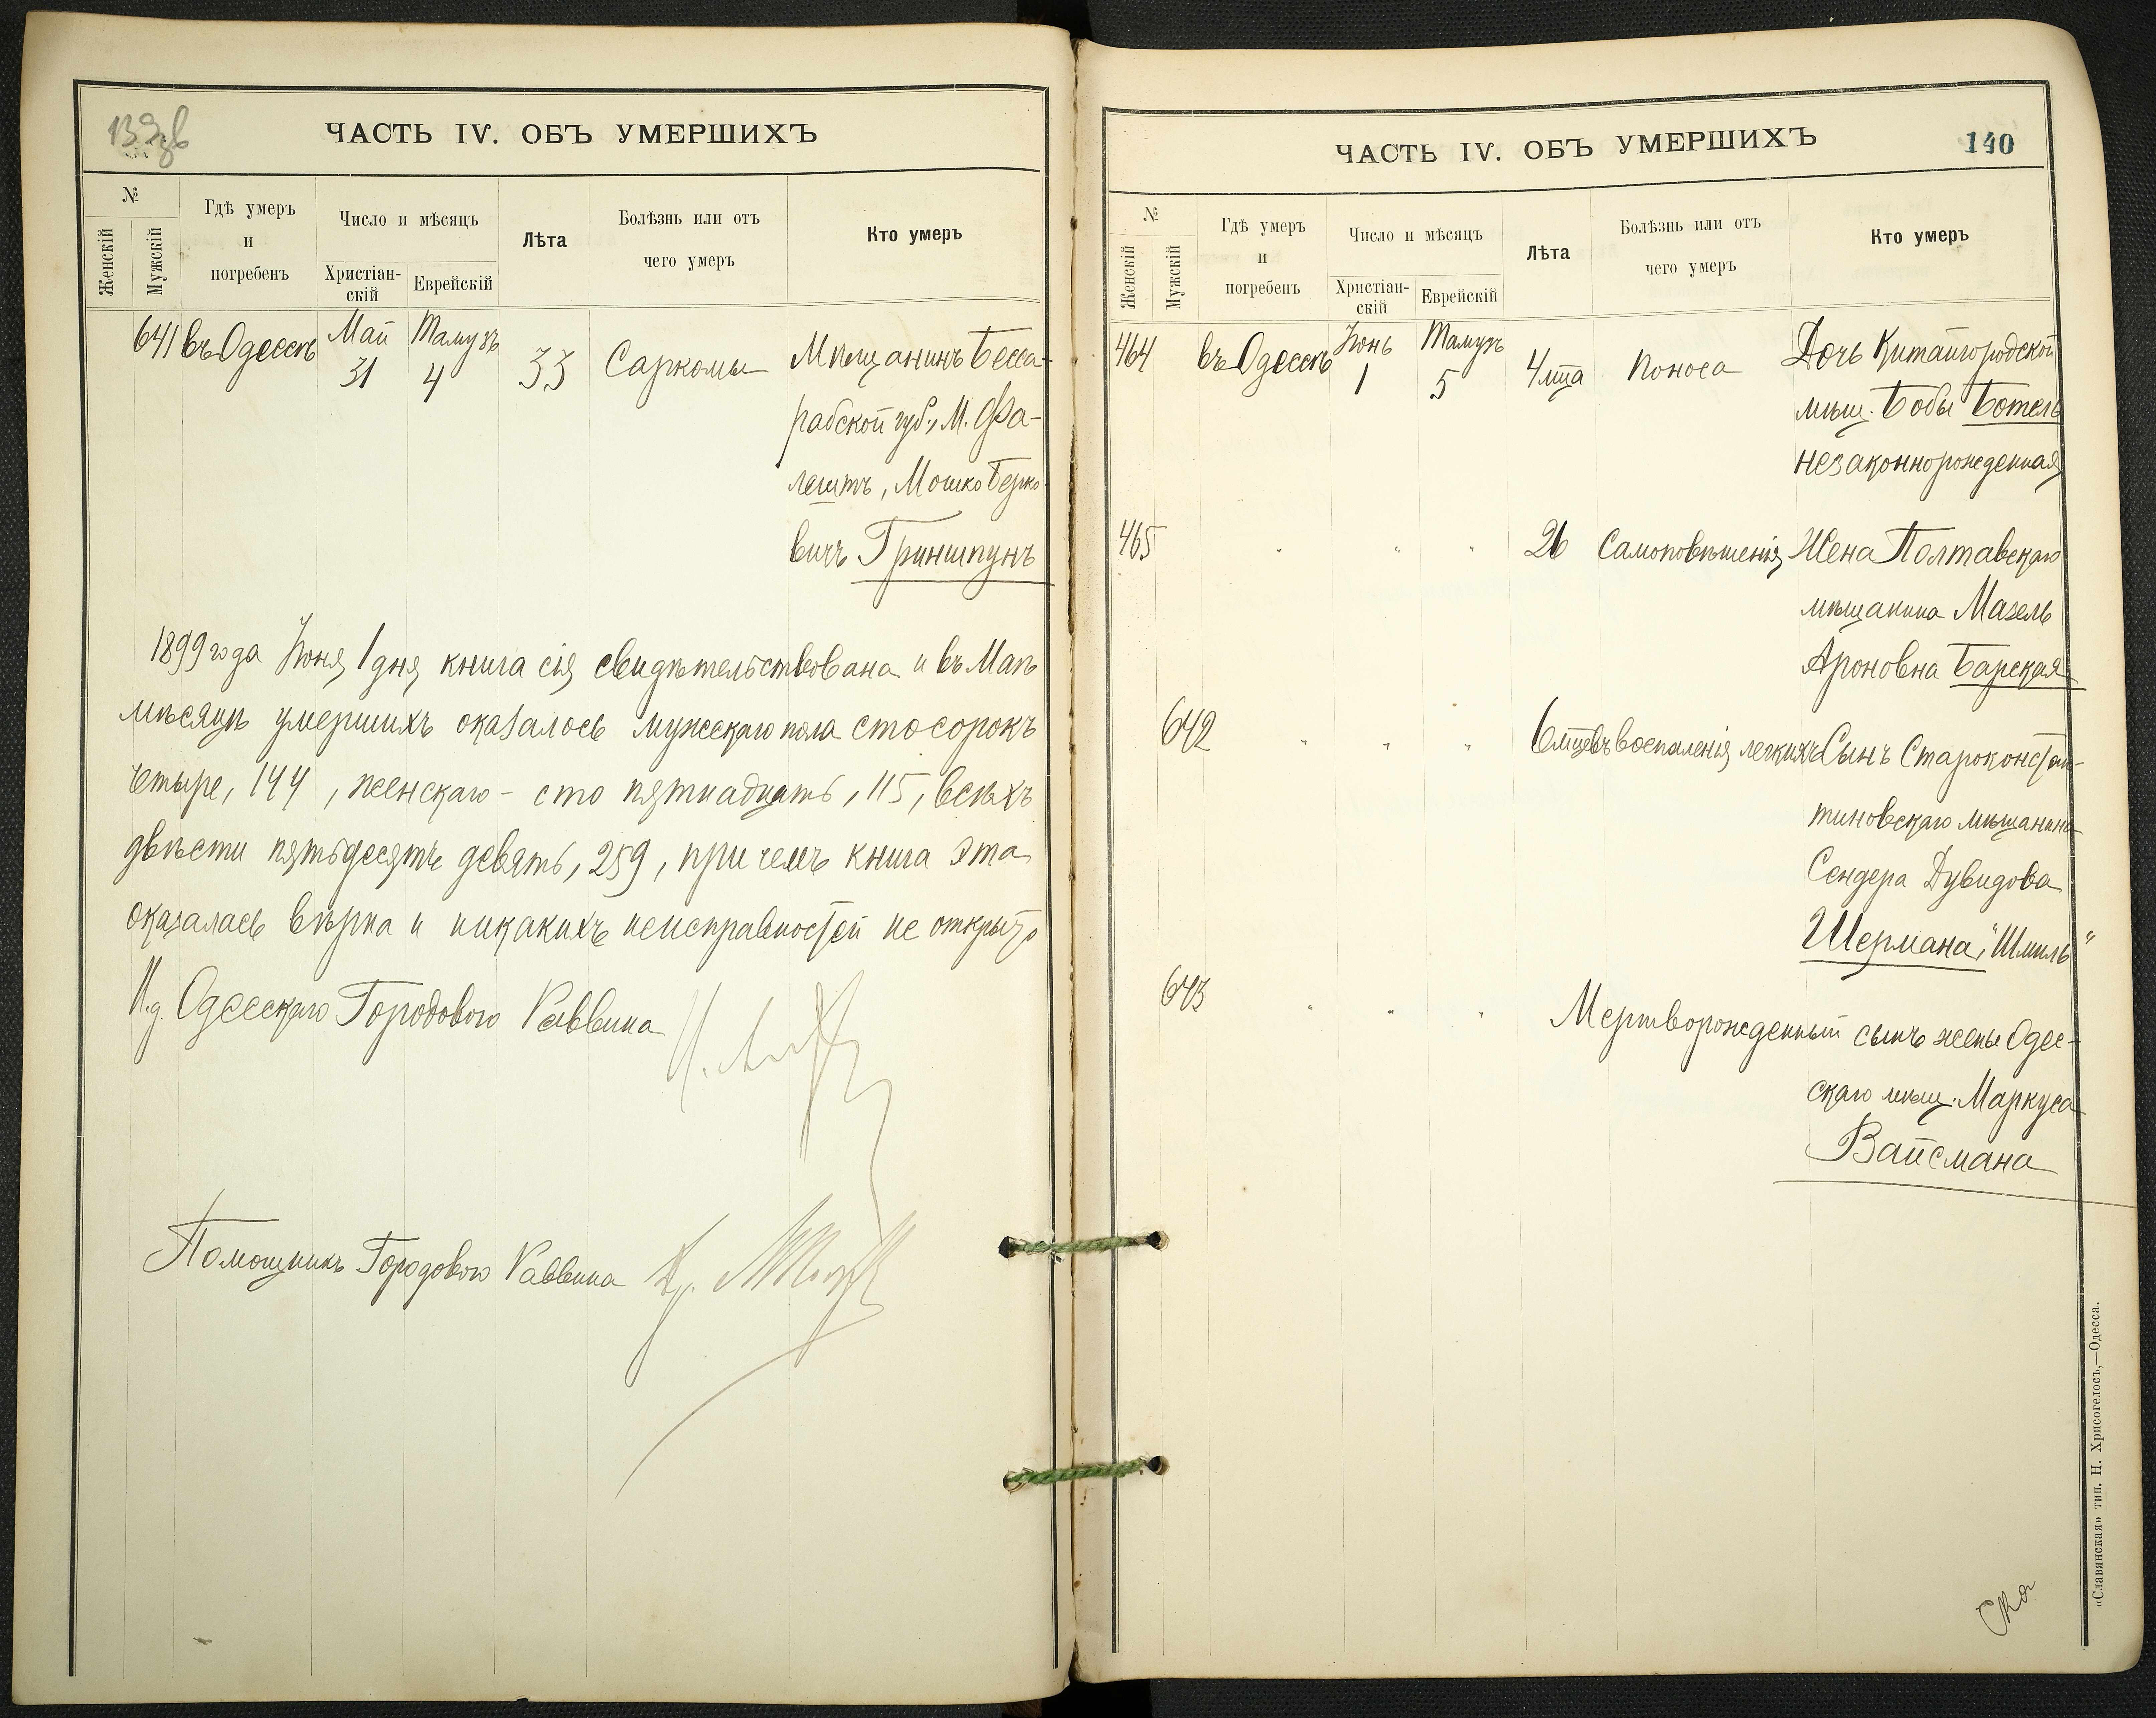 139об
ЧАСТЬ IV. ОБЪ УМЕРШИХЪ
№
Женскій
Мужскій
Гдѣ умеръ
и
погребенъ
Число и мѣсяцъ
Христіан-
скій
Еврейскій
Лѣта
Болѣзнь или отъ
чего умеръ
Кто умеръ
641 въ Одессѣ Май 31 Тамузъ 4 33 Саркомы Мѣщанинъ Бесса-
рабской губ., М. Фа-
лештъ, Мошко Берко-
вичъ Гриншпунъ
1899 года Іюня 1 дня книга сія свидѣтельствована и въ Маѣ
мѣсяцѣ умершихъ оказалось мужескаго пола сто сорокъ
четыре, 144, женскаго - сто пятнадцать, 115, всѣхъ
двѣсти пятьдесятъ девять, 259, при чемъ книга эта
оказалась вѣрна и никакихъ неисправностей не открыто
И.д. Одесскаго Городового Раввина
Помощникъ Городового Раввина
ЧАСТЬ IV. ОБЪ УМЕРШИХЪ
140
№
Женскій
Мужскій
Гдѣ умеръ
и
погребенъ
Число и мѣсяцъ
Христіан-
скій
Еврейскій
Лѣта
Болѣзнь или отъ
чего умеръ
Кто умеръ
464 въ Одессѣ Іюнь 1 Тамузъ 5 4 мца Поноса Дочь Китайгородской
мѣщ. Бобы Ботель
незаконнорожденная
465 " " " 26 Самоповѣшенія Жена Полтавскаго
мѣщанина Мазель
Ароновна Барская
642 " " " 6 мцевъ воспаленія легкихъ Сынъ Староконстан-
тиновскаго мѣщанина
Сендера Дувидова
Шермана, "Шмиль"
643 " " " Мертворожденный сынъ жены Одес-
скаго мѣщ. Маркуса
Вайсмана
Ско
«Славянская» тип. Н. Хрисогелосъ,—Одесса.